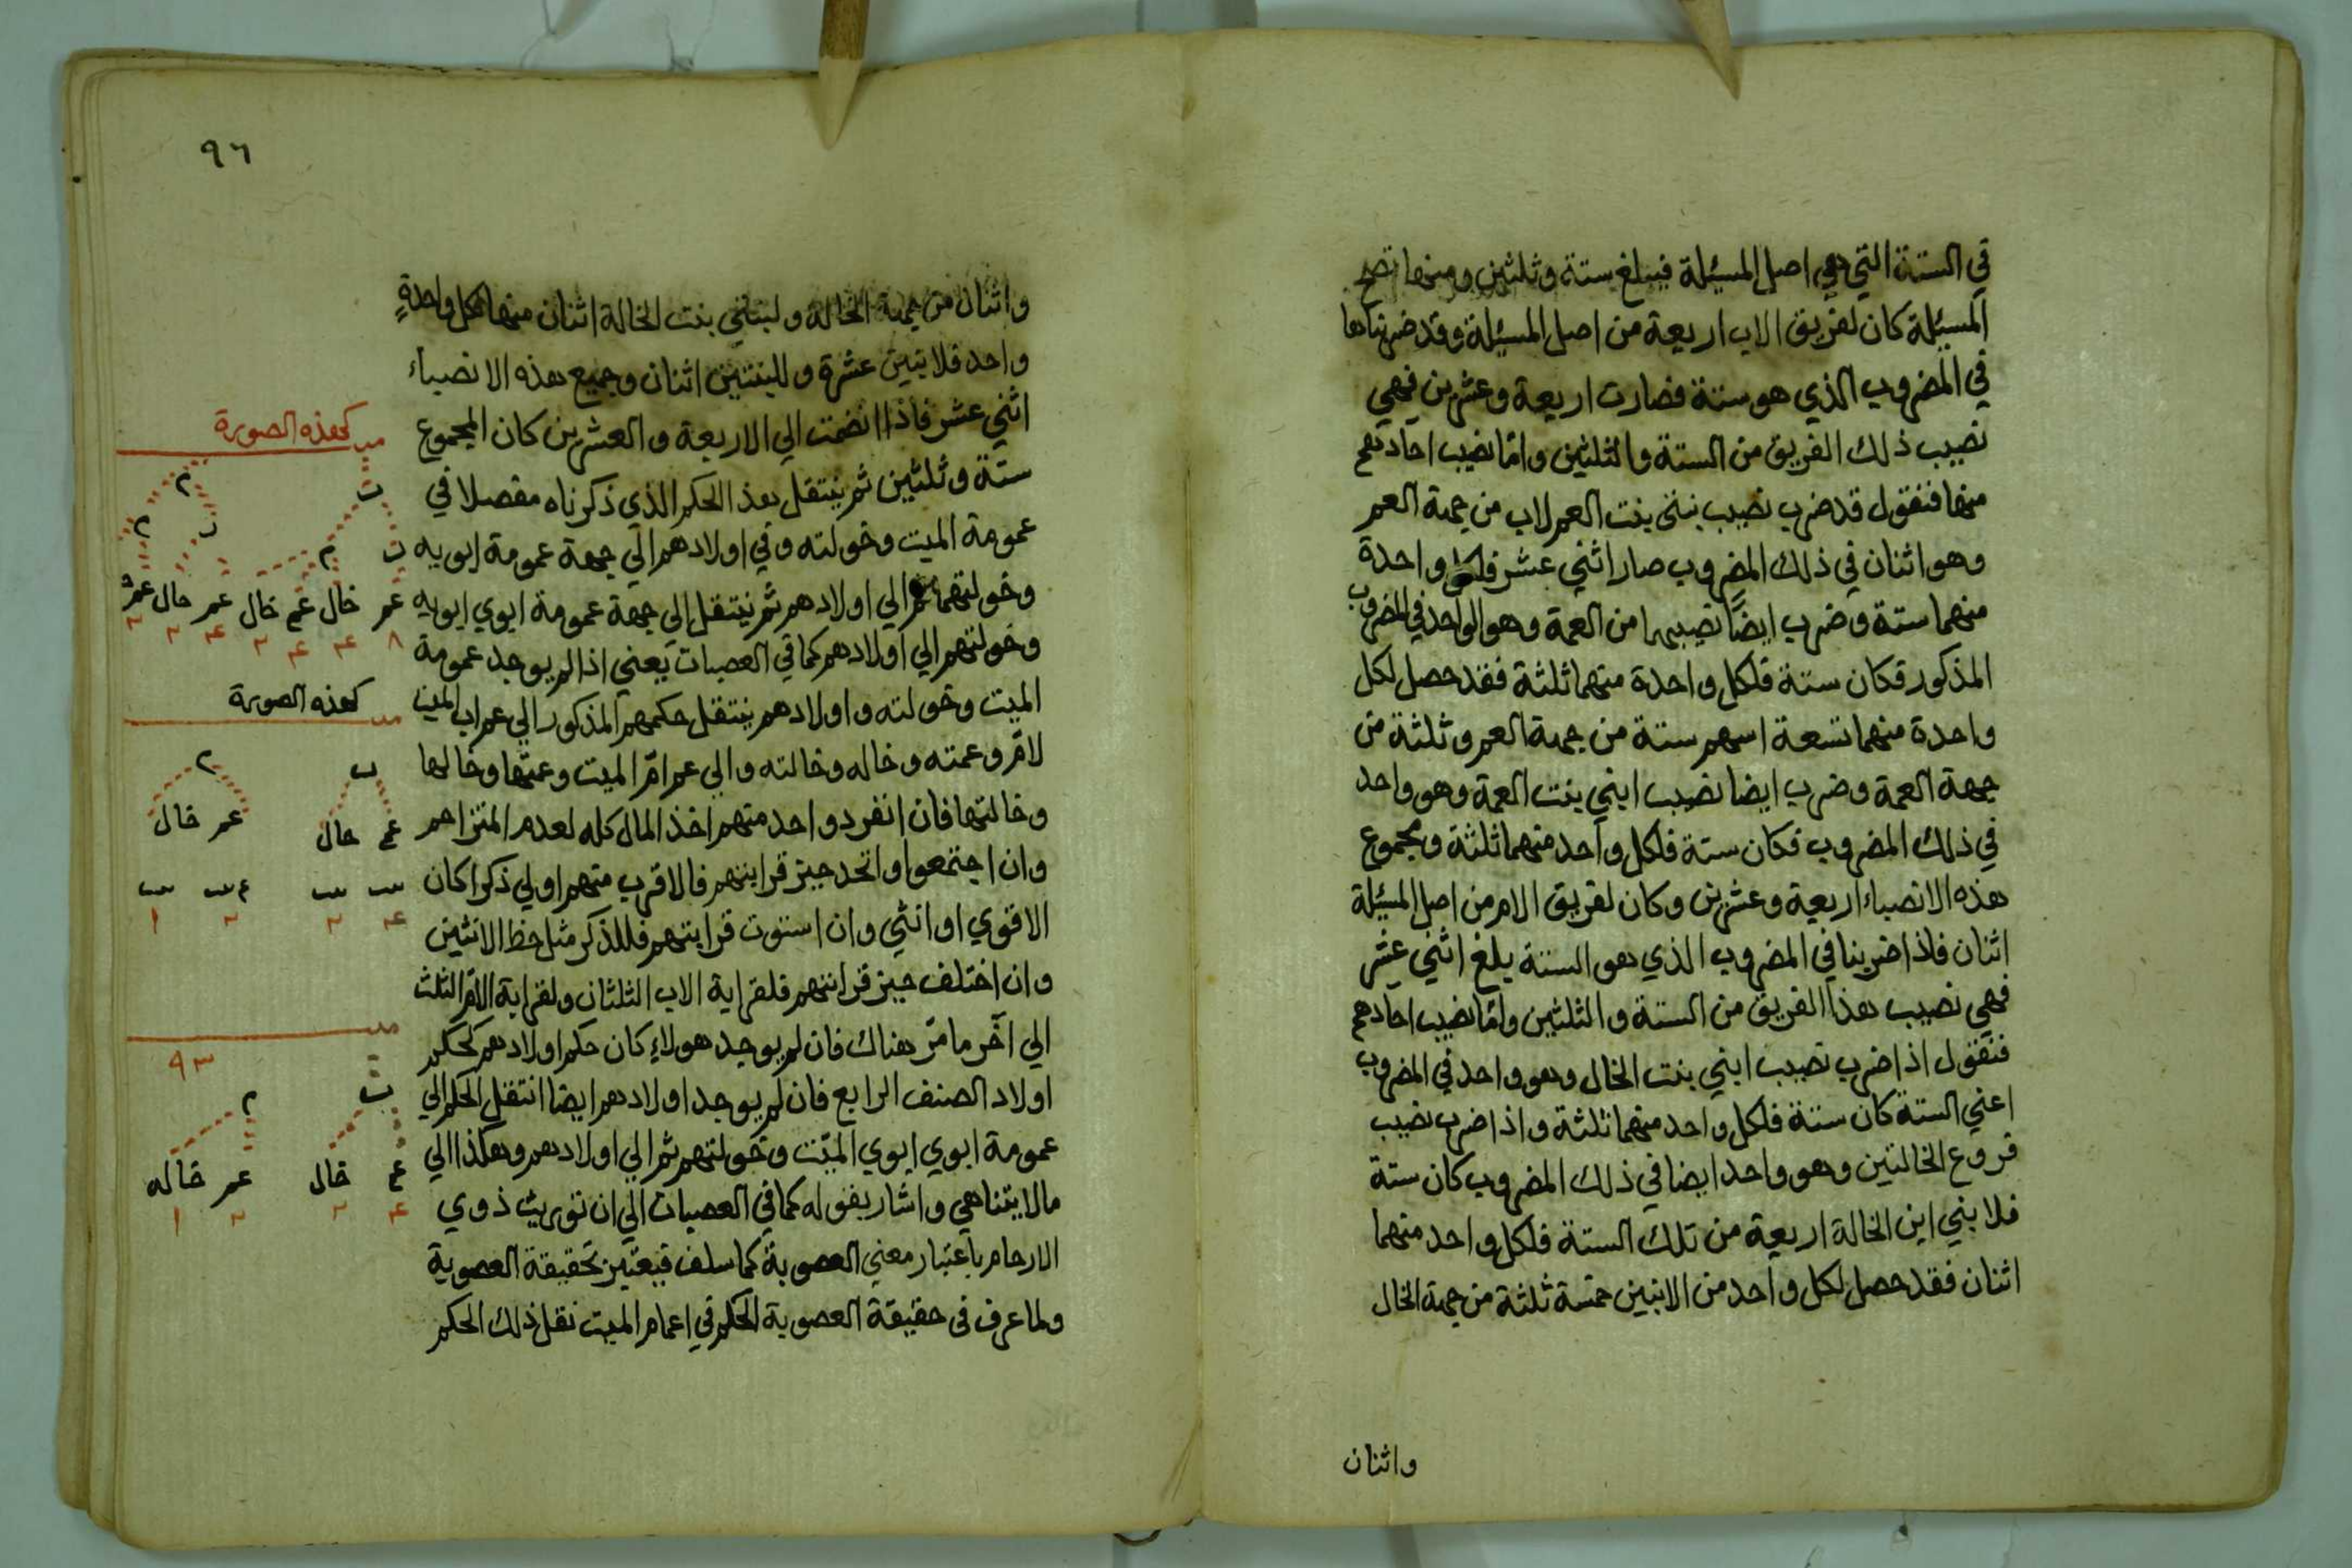 في الستة التي هي اصل المسئلة فيبلغ ستة وثلثين ومنها تصح
المسئلة كان لفريق الاب اربعة من اصل المسئلة وقد ضربناها
في المضروب الذي هو ستة فصارت اربعة وعشرين فهي
نصيب ذلك الفريق من الستة والثلثين واما نصيب احادهم
منها فنقول قد ضرب نصيب بنتي بنت العم لاب من جهة العم
وهو اثنان في ذلك المضروب صار اثني عشر فلكل واحدة
منهما ستة وضرب ايضا نصيبهما من العمة وهو الواحد في المضروب
المذكور فكان ستة فلكل واحدة منهما ثلثة فقد حصل لكل
واحدة منهما تسعة اسهم ستة من جهة العم وثلثة من
جهة العمة وضرب ايضا نصيب ابني بنت العمة وهو واحد
في ذلك المضروب فكان ستة فلكل واحد منهما ثلثة ومجموع
هذه الانصباء اربعة وعشرين وكان لفريق الام من اصل المسئلة
اثنان فاذا ضربنا في المضروب الذي هو الستة يبلغ اثني عشر
فهي نصيب هذا الفريق من الستة والثلثين واما نصيب احادهم
فنقول اذا ضرب نصيب ابني بنت الخال وهو واحد في المضروب
اعني الستة كان ستة فلكل واحد منهما ثلثة واذا ضرب نصيب
فروع الخالتين وهو واحد ايضا في ذلك المضروب كان ستة
فلابني ابن الخالة اربعة من تلك الستة فلكل واحد منهما
اثنان فقد حصل لكل واحد من الابنين خمسة ثلثة من جهة الخال
واثنان
٩٦
واثنان من جهة الخالة ولبنتي بنت الخالة اثنان منها لكل واحدة
واحد فلابنين عشرة وللبنتين اثنان وجميع هذه الانصباء
اثني عشر فاذا انضمت الي الاربعة والعشرين كان المجموع
ستة وثلثين ثم ينتقل هذا الحكم الذي ذكرناه مفصلا في
عمومة الميت وخولته وفي اولادهم الي جهة عمومة ابويه
وخولتهما ثم الي اولادهم ثم ينتقل الي جهة عمومة ابوي ابويه
وخولتهم الي اولادهم كما في العصبات يعني اذا لم يوجد عمومة
الميت وخولته واولادهم ينتقل حكمهم المذكور الي عم اب الميت
لام وعمته وخاله وخالته والي عم ام الميت وعمتها وخالها
وخالتها فان انفرد واحد منهم اخذ المال كله لعدم المتزاحم
وان اجتمعوا واتحد حيز قرابتهم فالاقرب منهم اولي ذكرا كان
الاقوي او انثي وان استوت قرابتهم فللذكر مثل حظ الانثيين
وان اختلف حيز قرابتهم فلقرابة الاب الثلثان ولقرابة الام الثلث
الي آخر ما مر هناك فان لم يوجد هولاء كان حكم اولادهم كحكم
اولاد الصنف الرابع فان لم يوجد اولادهم ايضا انتقل الحكم الي
عمومة ابوي ابوي الميت وخولتهم ثم الي اولادهم وهكذا الي
مالا يتناهي واشار بقوله كما في العصبات الي ان توريث ذوي
الارحام باعتبار معني العصوبة كما سلف فيعتبر بحقيقة العصوبة
ولما عرف في حقيقة العصوبة الحكم في اعمام الميت نقل ذلك الحكم
كهذه الصورة
عم خال عم خال عم خال عمه
٨ ۴ ۴ ٢ ۴ ٢ ٢
كهذه الصورة
ب م
عم خال عم خال
۴ ٢ ٢ ١
٩٣
ب م
عم خال عم خاله
۴ ٢ ٢ ١